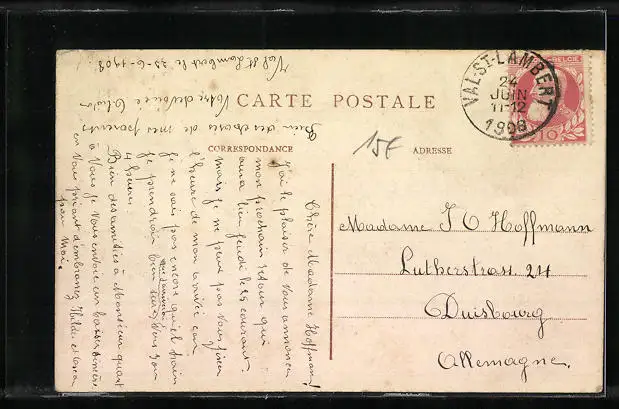 CARTE POSTALE
CORRESPONDANCE
ADRESSE
15f
VAL-ST-LAMBERT
24
JUIN
11-12
1908
10
Madame J O Hoffmann
Lutherstrass. 24
Duisbourg
Allemagne.
Val St Lambert le 23-6-1908.
Chère Madame Hoffmann!
J'ai le plaisir de vous annoncer
mon prochain retour qui
aura lieu jeudi le 25 courant.
Mais je ne peux pas vous fixer
l'heure de mon arrivée car
je ne sais pas encore quel train
je prendrai
4 heures.
Bien des amitiés à Monsieur quant
à Vous je Vous envoie un baiser sincère
en Vous priant d'embrasser Hilda et
pour moi.
Bien des choses de mes parents
Votre dévouée